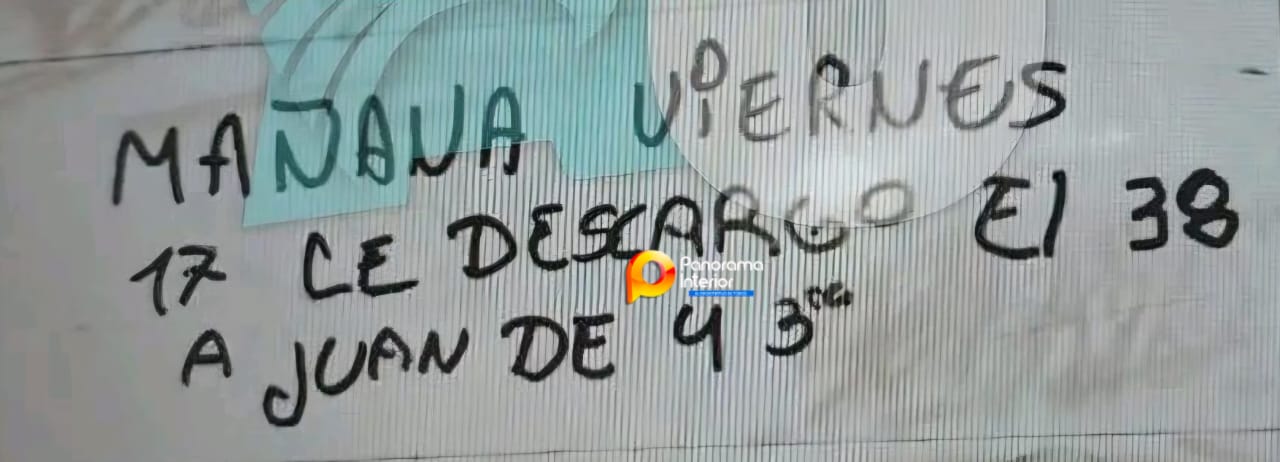 MAÑANA VIERNES
17 CE DESCARGO El 38
Panorama
Interior
A JUAN DE 4 3ra